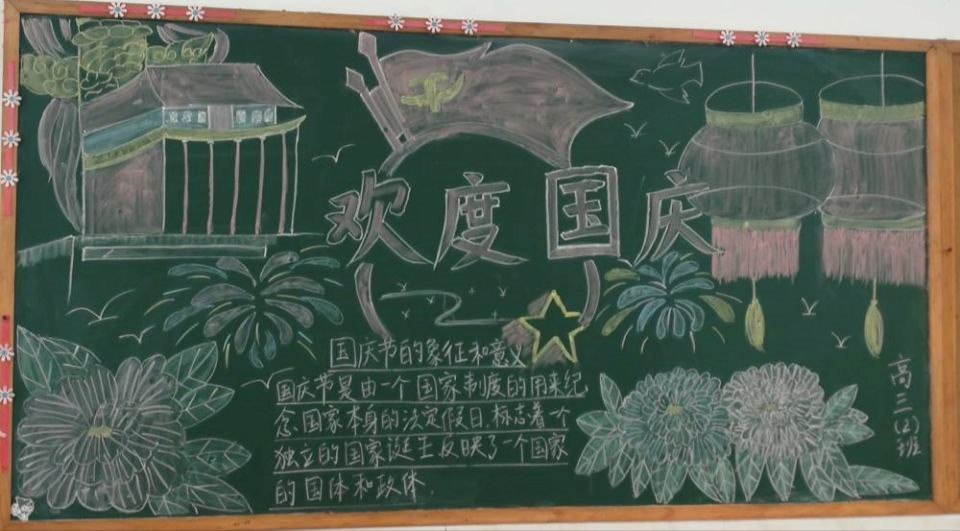 欢度国庆
国庆节的象征和意义
国庆节是由一个国家制度的用来纪
念国家本身的法定假日.标志着一个
独立的国家诞生反映了一个国家
的国体和政体.
高三(2)班